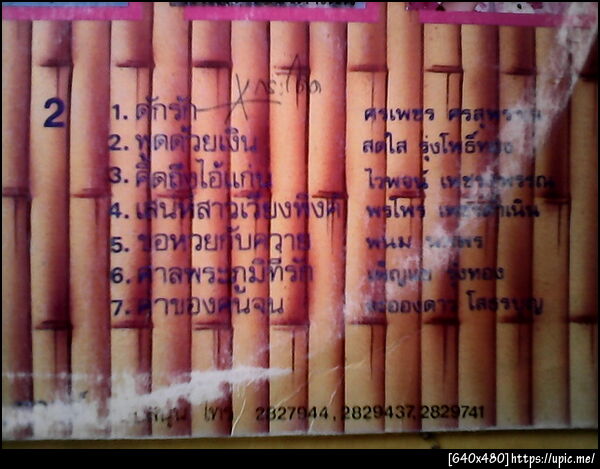 2
1. ดักรัก ศรเพชร ศรสุพรรณ
2. พูดด้วยเงิน สดใส รุ่งโพธิ์ทอง
3. คิดถึงไอ้แก่น ไวพจน์ เพชรสุพรรณ
4. เสน่ห์สาวเวียงพิงค์ พรไพร เพชรดำเนิน
5. ขอหวยกับควาย พนม นพพร
6. ศาลพระภูมิที่รัก รุ่งทอง
7. ค่าของคนจน ละอองดาว โสธรบุญ
โทร. 2827944, 2829437, 2829741
[640x480]https://upic.me/